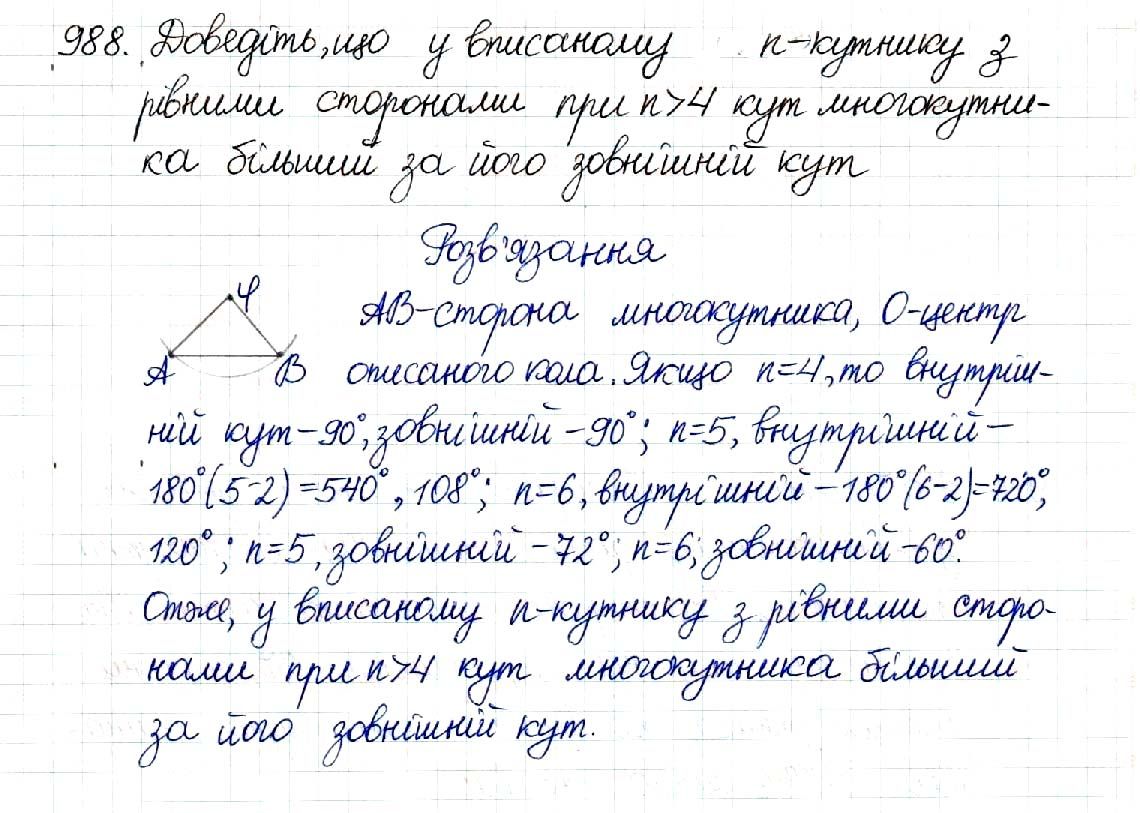 988. Доведіть, що у вписаному n-кутнику з
рівними сторонами при n>4 кут многокутни-
ка більший за його зовнішній кут
Розв'язання
φ
A B
AB-сторона многокутника, O-центр
описаного кола. Якщо n=4, то внутріш-
ній кут-90°, зовнішній-90°; n=5, внутрішній-
180°(5-2)=540°, 108°; n=6, внутрішній-180°(6-2)=720°,
120°; n=5, зовнішній-72°; n=6; зовнішній-60°.
Отже, у вписаному n-кутнику з рівними сторо-
нами при n>4 кут многокутника більший
за його зовнішній кут.